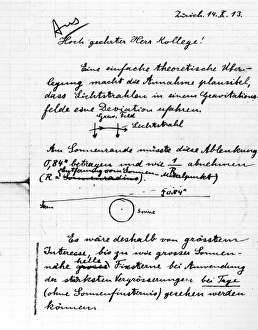 Aus
Zürich. 14. X. 13.
Hoch geehrter Herr Kollege!
Eine einfache theoretische Über-
legung macht die Annahme plausibel,
dass Lichtstrahlen in einem Gravitations-
felde eine Deviation erfahren.
Grav. Feld
Lichtstrahl
Am Sonnenrande müsste diese Ablenkung
0,84" betragen und wie 1/R abnehmen
(R = Sonnenradius)
0.84"
Stern
Sonne
Es wäre deshalb von grösstem
Interesse, bis zu wie grosser Sonnen-
nähe helle Fixsterne bei Anwendung
der stärksten Vergrösserungen bei Tage
(ohne Sonnenfinsternis) gesehen werden
können.